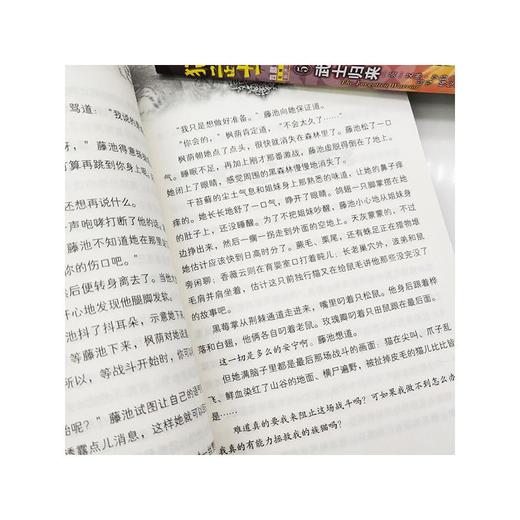 武士归来
The Forgotten Warrior
骂道：“我说的
，藤池得意
打算再跳到你身上呢。
还想再说什么。
声咆哮打断了他的话。
藤池不知道她在那里
你的伤口吧。”
然后便转身离去了。当他
开心地发现他腿脚发软。
藤池抖了抖耳朵，示意她下
等藤池下来，枫荫对她说道
所以，等战斗开始时，你可以
始呢？”藤池试图让自己的语气
透露点儿消息，这样她就可以
“我只是想做好准备。”藤池向她保证道。
“你会的，”枫荫肯定道，“不会太久了……”
枫荫朝她点了点头，很快就消失在森林里了。藤池松了一口
气。睡眠不足，再加上刚才那番激战，藤池虚脱得倒在了地上。
她闭上了眼睛，感觉周围的黑森林慢慢地消失了。
干苔藓的尘土气息和姐妹身上那熟悉的味道，让她的鼻子痒
痒的。她长长地舒了一口气，睁开了眼睛。鸽翅一只脚掌搭在她
的肚子上，还没睡醒。为了不把姐妹吵醒，藤池小心地从姐妹身
边挣出来，然后一瘸一拐走到外面的空地上。天灰蒙蒙的，不过
她估计应该快到日高时分了。蕨毛、栗尾，还有蛛足正在猎物堆
旁闲聊；香薇云则在育婴室口打着盹儿；长老巢穴外，波弟和鼠
毛肩并肩坐着，估计这只前独行猫又在给鼠毛讲他那些没完没了
的故事吧。
黑莓掌从荆棘通道走进来，嘴里叼着只松鼠。他身后跟着桦
落和白翅，他俩各自叼着老鼠。玫瑰瓣叼着只田鼠跟在最后面。
这一切是多么的安宁啊。藤池想道。
但她满脑子里都是最后那场战斗的画面：猫在尖叫、爪子乱
飞、鲜血染红了山谷的地面、横尸遍野，被扯掉皮毛的猫儿比比皆
是……
难道真的要我来阻止这场战斗吗？可如果我做不到怎么办
我真的有能力拯救我的族猫吗？